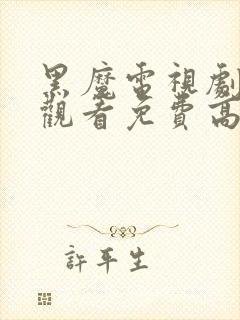 黑魔電視劇
觀看免費高
許平生